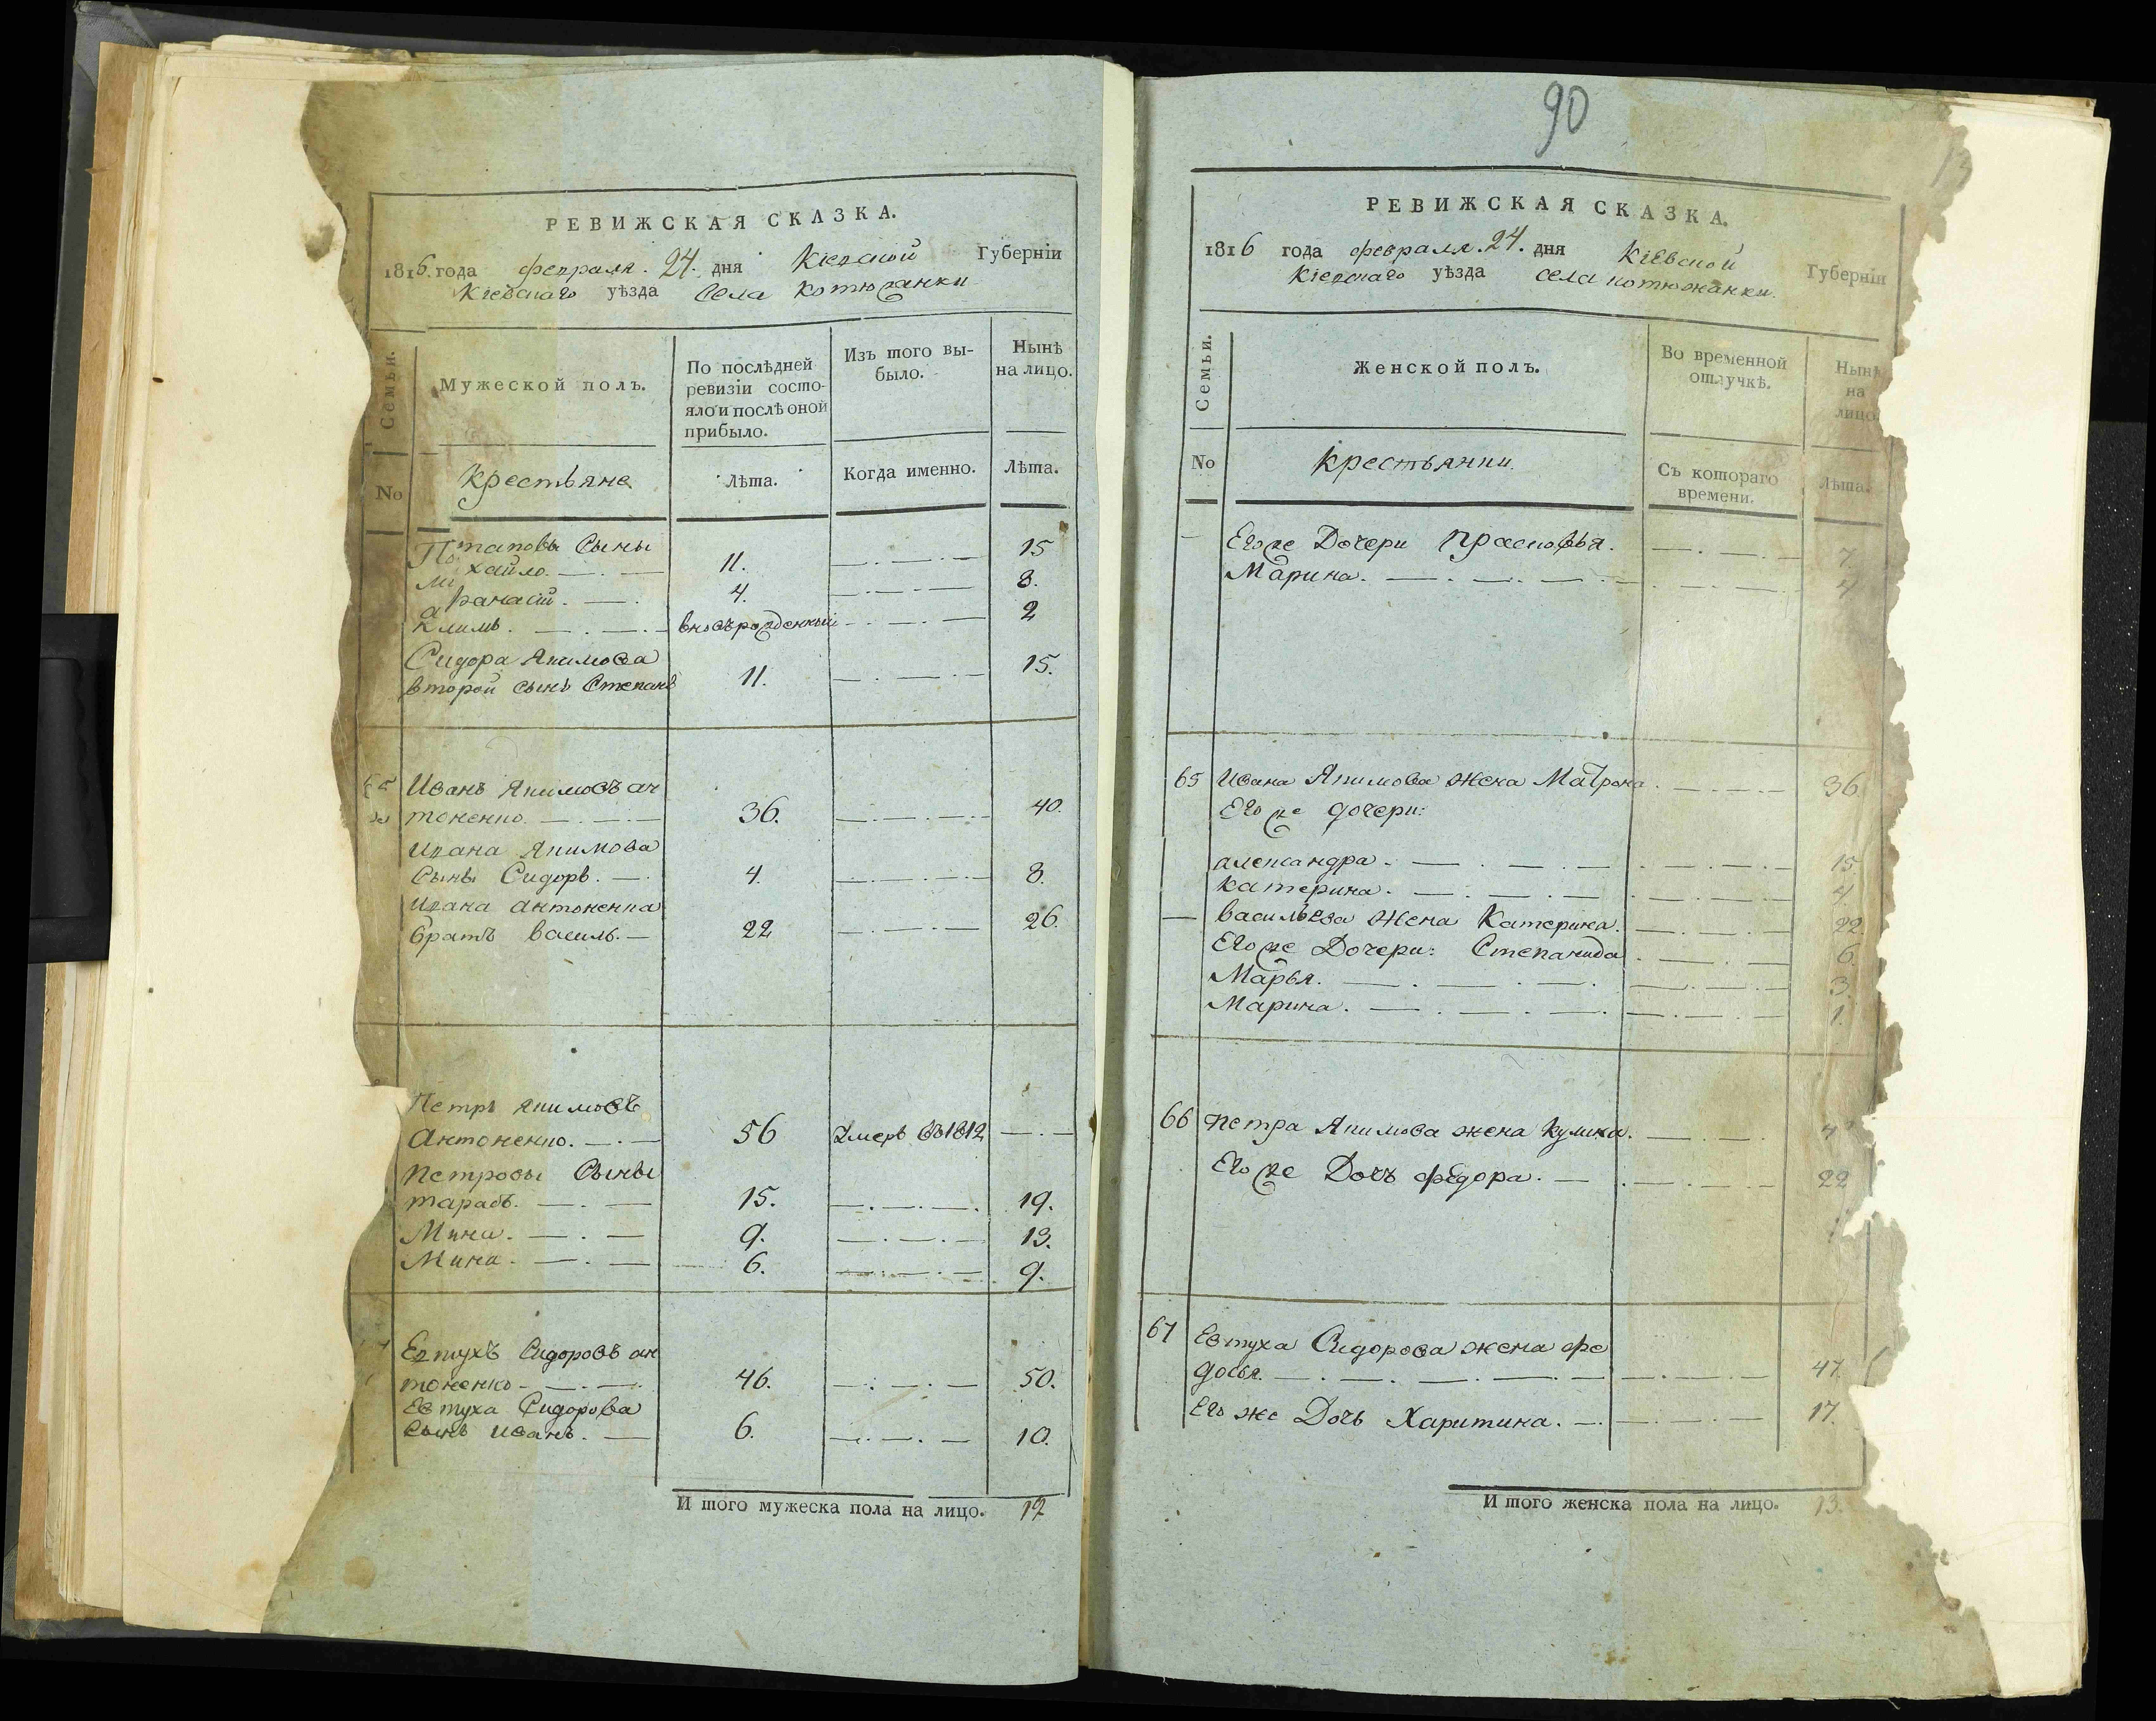 РЕВИЖСКАЯ СКАЗКА.
1816. года февраля. 24. дня Кіевской Губерніи
Кіевскаго уѣзда Села Котюжанки
Семьи.
Мужеской полъ.
По послѣдней
ревизіи состо-
яло и послѣ оной
прибыло.
Изъ того вы-
было.
Нынѣ
на лицо.
No
Крестьяне
Лѣта.
Когда именно.
Лѣта.
Потаповы Сыны
Михайло. 11. 15
афанасій. 4. 8.
Климъ. вновърожденный 2
Сидора Якимова
второй сынъ Степанъ 11. 15.
65 Иванъ Якимовъ ан
тоненко. 36. 40.
Ивана Якимова
Сынъ Сидоръ. 4. 8.
Ивана антоненка
братъ василь. 22 26.
Петръ Якимовъ
Антоненко. 56 Умеръ въ 1812
Петровы Сыны
тарасъ. 15. 19.
Мина. 9. 13.
Мина. 6. 9.
Евтухъ Сидоровъ ан
тоненко 46. 50.
Евтуха Сидорова
Сынъ иванъ. 6. 10.
И того мужеска пола на лицо. 12
90
РЕВИЖСКАЯ СКАЗКА.
1816 года февраля. 24. дня Кіевской Губерніи
Кіевскаго уѣзда села котюжанки.
Семьи.
Женской полъ.
Во временной
отлучкѣ.
Нынѣ
на
лицо
No
Крестьянки.
Съ котораго
времени.
Лѣта.
Егоже Дочери Прасковья. 7.
Марина. 4
65 Ивана Якимова жена Матрона. 36.
Егоже дочери:
александра. 15.
катерина. 4.
васильева жена Катерина. 22.
Егоже Дочери: Степанида. 6.
Марья. 3.
Марина. 1.
66 Петра Якимова жена Кулина.
Егоже Дочь федора. 22
67 Евтуха Сидорова жена фе
досья. 47.
Его же Дочь Харитина. 17.
И того женска пола на лицо. 13.